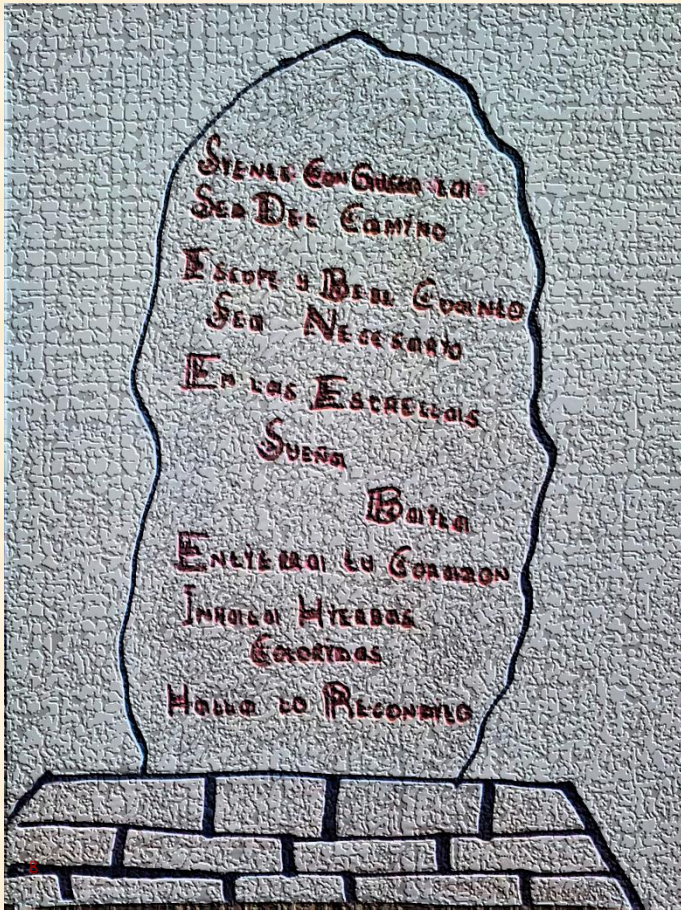 Siente Con Gusto la
Sed Del Camino
Escupe y Bebe Cuando
Sea Necesario
En las Estrellas
Sueña
Baila
Entierra tu Corazon
Inhala Hierbas
Coloridas
Halla lo Recondito